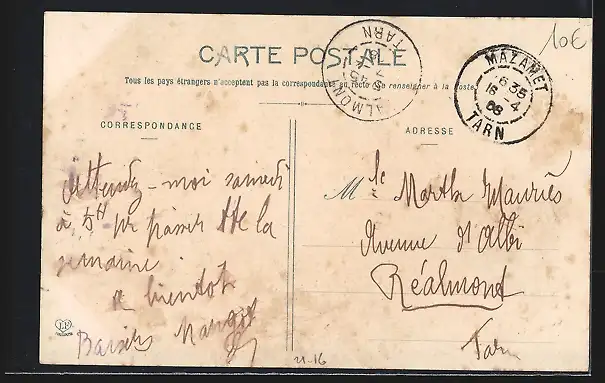 10€
CARTE POSTALE
Tous les pays étrangers n'acceptent pas la correspondance au recto (Se renseigner à la Poste)
REALMONT
TARN
MAZAMET
16 35
16 - 4
08
TARN
CORRESPONDANCE
Attendez-moi samedi
à 5H pr passer tte la
semaine
a bientôt
Baisers Margot
ADRESSE
Mlle Marthe Mauriès
Avenue d'Albi
Réalmont
Tarn
21-16